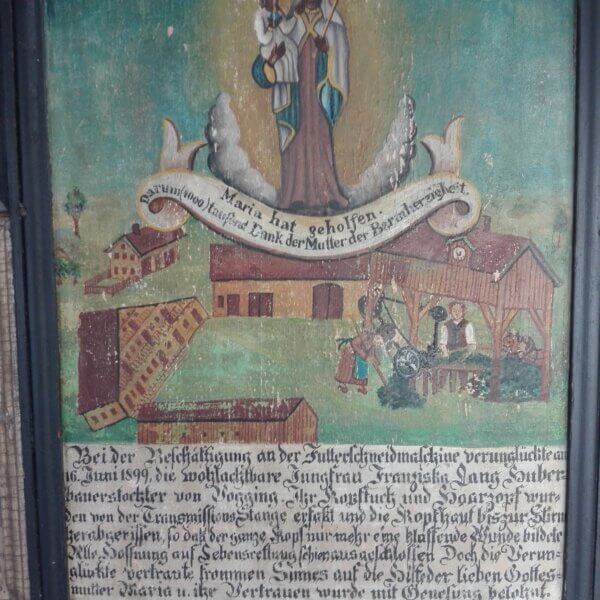 Maria hat geholfen.
Darum (1000) tausend Dank der Mutter der Barmherzigkeit.
Bei der Beschäftigung an der Futterschneidmaschine verunglückte am
16. Juni 1899, die wohlachtbare Jungfrau Franziska Lang Huber-
bauerstochter von Pogging. Ihr Kopftuch und Haarzopf wur-
den von der Transmissions Stange erfaßt und die Kopfhaut bis zur Stirn
herabgerissen, so daß der ganze Kopf nur mehr eine klaffende Wunde bildete
Alle Hoffnung auf Lebensrettung schien ausgeschlossen Doch die Verun-
glückte vertraute frommen Sinnes auf die Hilfe der lieben Gottes-
mutter Maria u. ihr Vertrauen wurde mit Genesung belohnt.